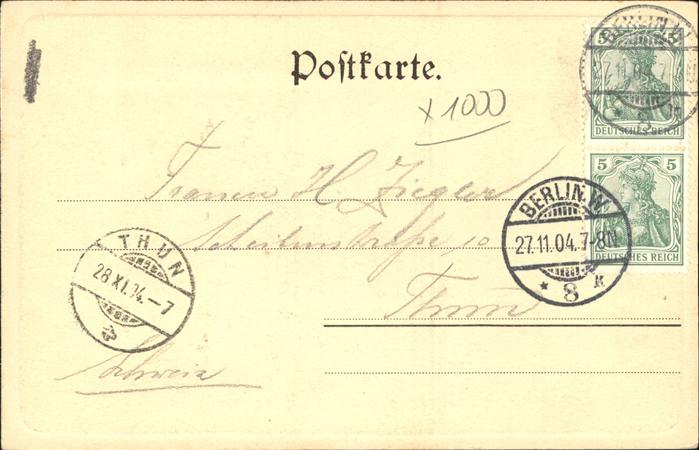 Postkarte.
x 1000
H. Ziegler
Scheibenstraße 10
Thun
Schweiz
THUN
28 XI. 04. – 7
BERLIN. W.
27.11.04. 7-8N.
* 8 k
BERLIN. W.
* 8 k
5 5
DEUTSCHES REICH
5 5
DEUTSCHES REICH